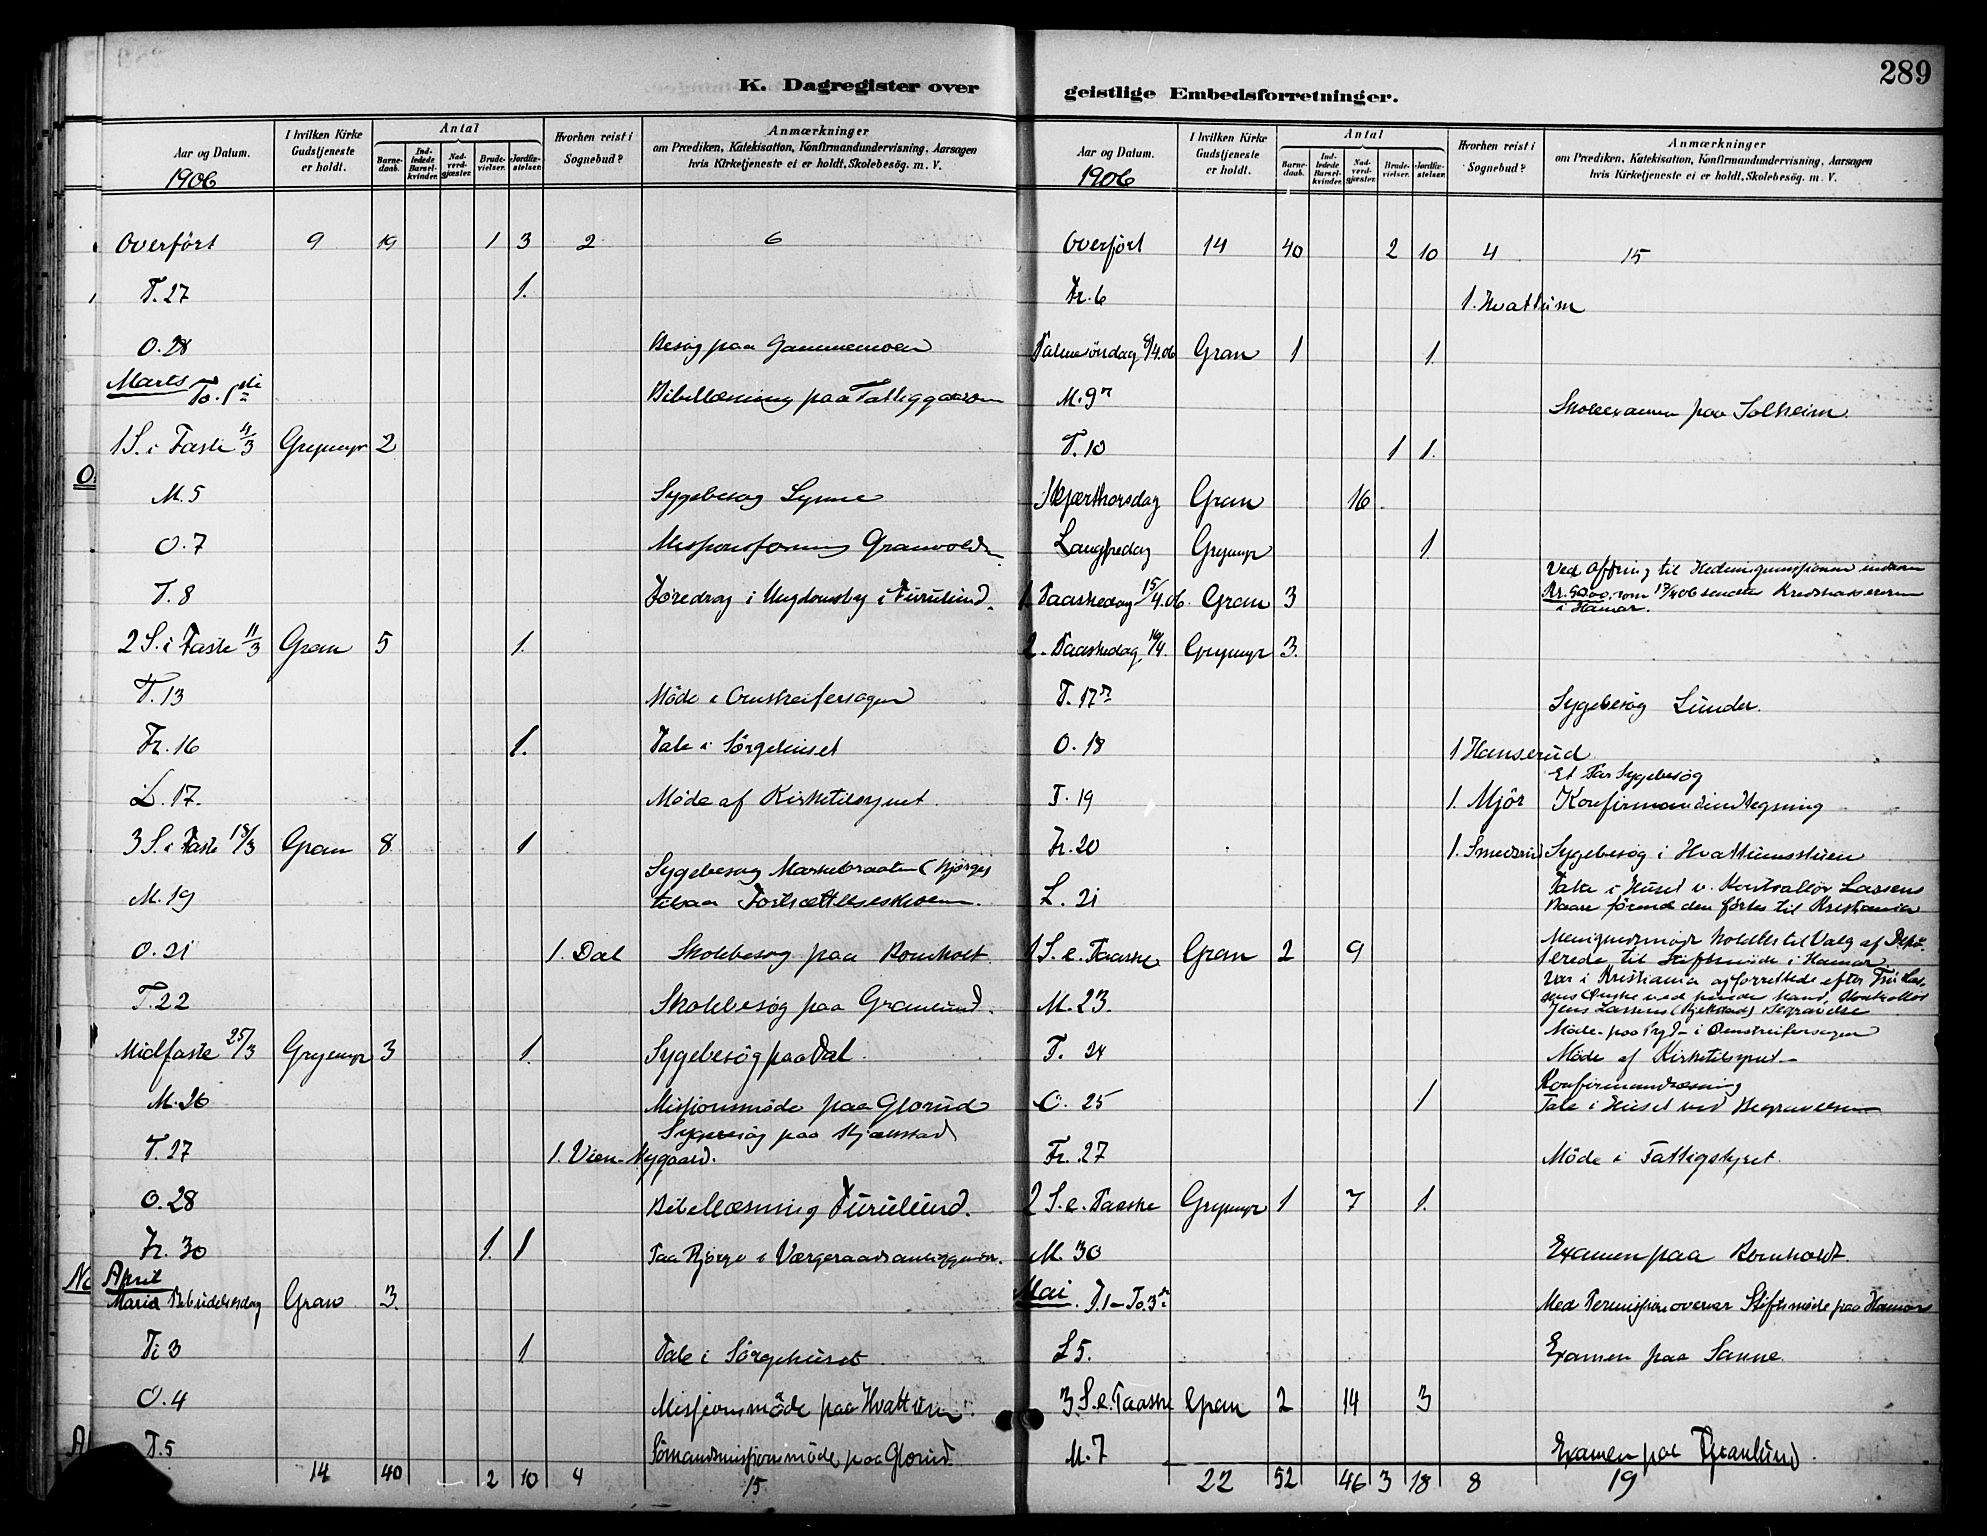 289
K. Dagregister over
Aar og Datum.
1906
I hvilken Kirke Gudstjeneste er holdt.
Antal
Barnedaab.
Indledede Barselkvinder.
Nadverdgjæster.
Brudevielser.
Jordfæstelser.
Hvorhen reist i Sognebud?
Anmærkninger
om Prædiken, Katekisation, Konfirmandundervisning, Aarsagen
hvis Kirketjeneste ei er holdt, Skolebesøg. m. V.
Overført 9 19 1 3 2 6
T. 27 1.
O. 28 Besøg paa Gammemoen
Marts
To. 1ste Bibellæsning paa Fattiggaarden
1 S. i Faste 4/3 Grymyr 2
M. 5 Sygebesøg Lynne
O. 7 Missionsforening Granvolden
T. 8 Foredrag i Ungdomsby i Furulund.
2 S. i Faste 11/3 Gran 5 1.
T. 13 Møde i Omstreifersagen
Fr. 16 1. Tale i Sørgehuset
L. 17. Møde af Kirketilsynet.
3 S. i Faste 18/3 Gran 8 1
M. 19 Sygebesøg
Fortsættelsesskolen.
O. 21 1. Dal Skolebesøg paa Bornholt
T. 22 Skolebesøg paa Granlund.
Midfaste 25/3 Grymyr 3 1. Sygebesøg paa Dal.
M. 26 Missionsmøde paa Glorud
Sygebesøg paa Kjækstad
T. 27 1. Vien-Nygaard.
O. 28 Bibellæsning Furulund.
Fr. 30 1. 1 Paa Bjørge i Værgeraadsanliggender.
April
Mariæ Bebudelsesdag Gran 3.
Ti 3 1 Tale i Sørgehuset
O. 4 Missionsmøde paa Hvattum.
T. 5 Sømandsmissionsmøde paa Glorud
14 40 2 10 4 15
geistlige Embedsforretninger.
Aar og Datum.
1906
I hvilken Kirke Gudstjeneste er holdt.
Antal
Barnedaab.
Indledede Barselkvinder.
Nadverdgjæster.
Brudevielser.
Jordfæstelser.
Hvorhen reist i Sognebud?
Anmærkninger
om Prædiken, Katekisation, Konfirmandundervisning, Aarsagen
hvis Kirketjeneste ei er holdt, Skolebesøg. m. V.
Overført 14 40 2 10 4 15
Fr. 6 1. Hvattum
Palmesøndag 8/4.06 Gran 1 1.
M. 9de Skoleexamen paa Solheim.
T. 10 1 1.
Skjærthorsdag Gran 16
Langfredag Grymyr 1.
Ved Ofring til Hedningemissionen indkom
1. Paaskedag 15/4.06 Gran 3 Kr. 50.00, som 17/4 06 sendtes Kredskassereren
i Hamar.
2. Paaskedag 16/4. Grymyr 3.
T. 17de Sygebesøg Lunder.
O. 18 1 Hanserud
Et Par Sygebesøg
T. 19 1. Mjør Konfirmandindtegning
Fr. 20 1. Smedsrud Sygebesøg i Hvattumsstuen
L. 21 Tale i Huset v. Kontrollør Lassens
Baare førend den førtes til Kristiania
1 S. e. Paaske Gran 2 9 Menighedsmøde holdtes til Valg af Depu-
terede til Stiftsmøde i Hamar.
M. 23. Var i Kristiania og forrettede efter Fru Las-
sens Ønske ved hendes Mand, Kontrollør
Jens Lassens (Kjækstad) Begravelse
Møde paa i Omstreifersagen
T. 24 Møde af Kirketilsynet
Konfirmandlæsning
O. 25 1 Tale i Huset ved Begravelsen
Fr. 27 Møde i Fattigstyret
2 S. e. Paaske Grymyr 1 7 1.
M. 30 Examen paa Bornholdt.
Mai. T. 1 - To. 3de Med Permission overvar Stiftsmøde paa Hamar
L 5. Examen paa Sanne.
3 S. e. Paaske Gran 2 14 3
M. 7 Examen paa Granlund.
22 52 46 3 18 8 19